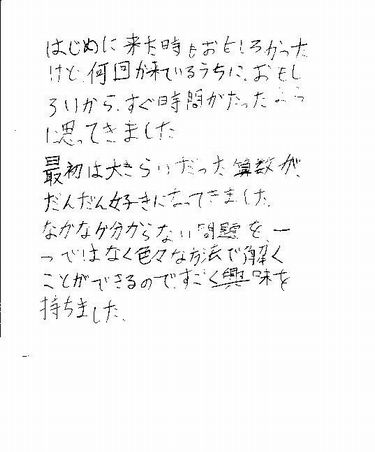 はじめに来た時もおもしろかった
けど何回か来ているうちに、おもし
ろいから、すぐ時間がたったよう
に思ってきました
最初は大きらいだった算数が、
だんだん好きになってきました。
なかなか分からない問題を、一
つではなく色々な方法で解く
ことができるのですごく興味を
持ちました。